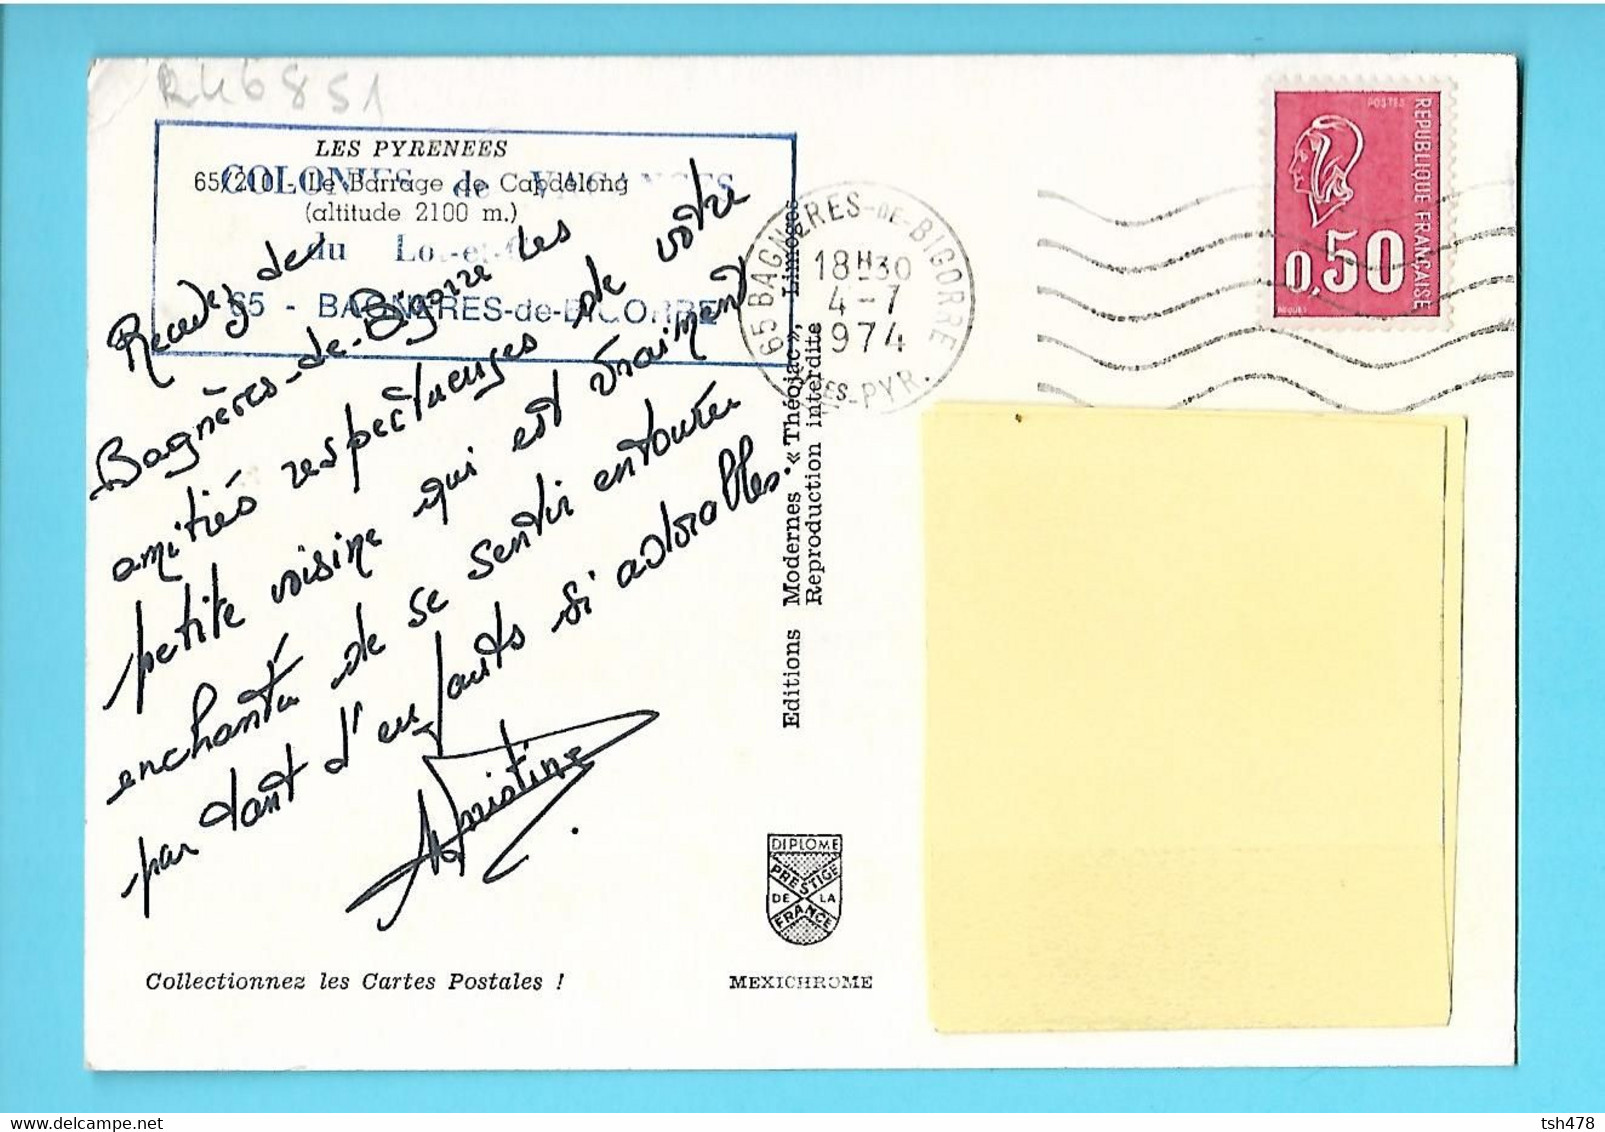 R46851
LES PYRENEES
65/210 - Le Barrage de Capdelong
(altitude 2100 m.)
COLONIES de VACANCES
du Lot-et-G
65 - BAGNERES-de-BIGORRE
Recevez de
Bagnères-de-Bigorre les
amitiés respectueuses de votre
petite voisine qui est vraiment
enchantée de se sentir entourée
par tant d'enfants si adorables.
Christine
Editions Modernes « Théojac », Limoges
Reproduction interdite
65 BAGNERES-DE-BIGORRE
18H30
4-7
1974
HTES-PYR.
POSTES
REPUBLIQUE FRANÇAISE
0,50
BEQUET
DIPLOME
PRESTIGE
DE LA
FRANCE
Collectionnez les Cartes Postales !
MEXICHROME
tsh478